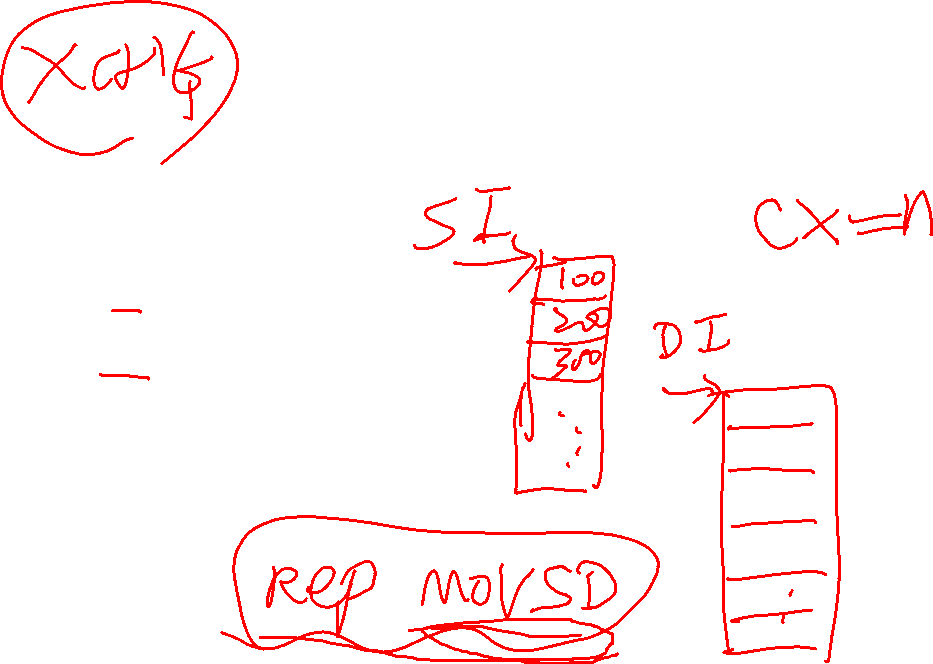 XCHG
SI
CX=n
100
200
300
DI
Rep MOVSD